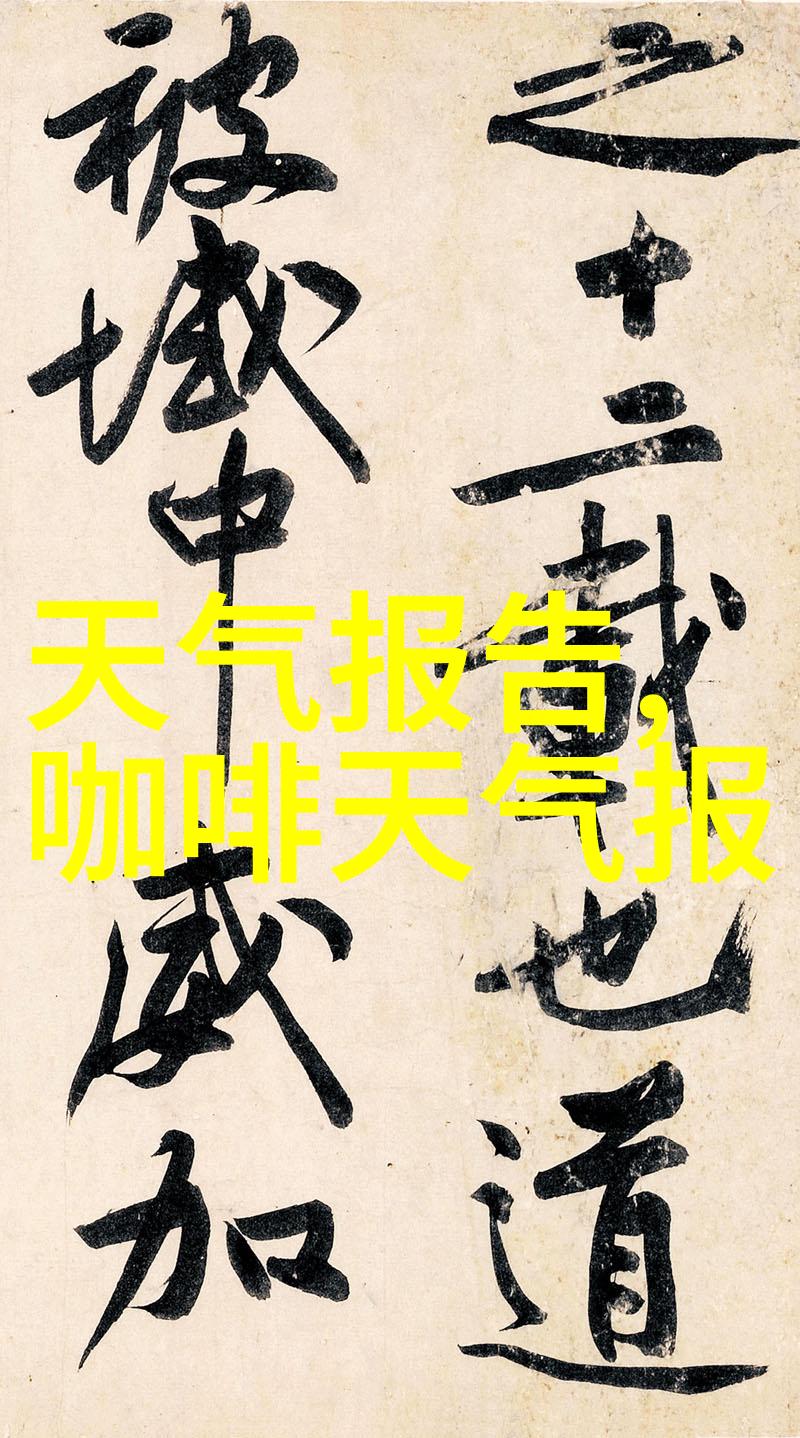 之十二載也道
被域中威加
天气报告，
咖啡天气报